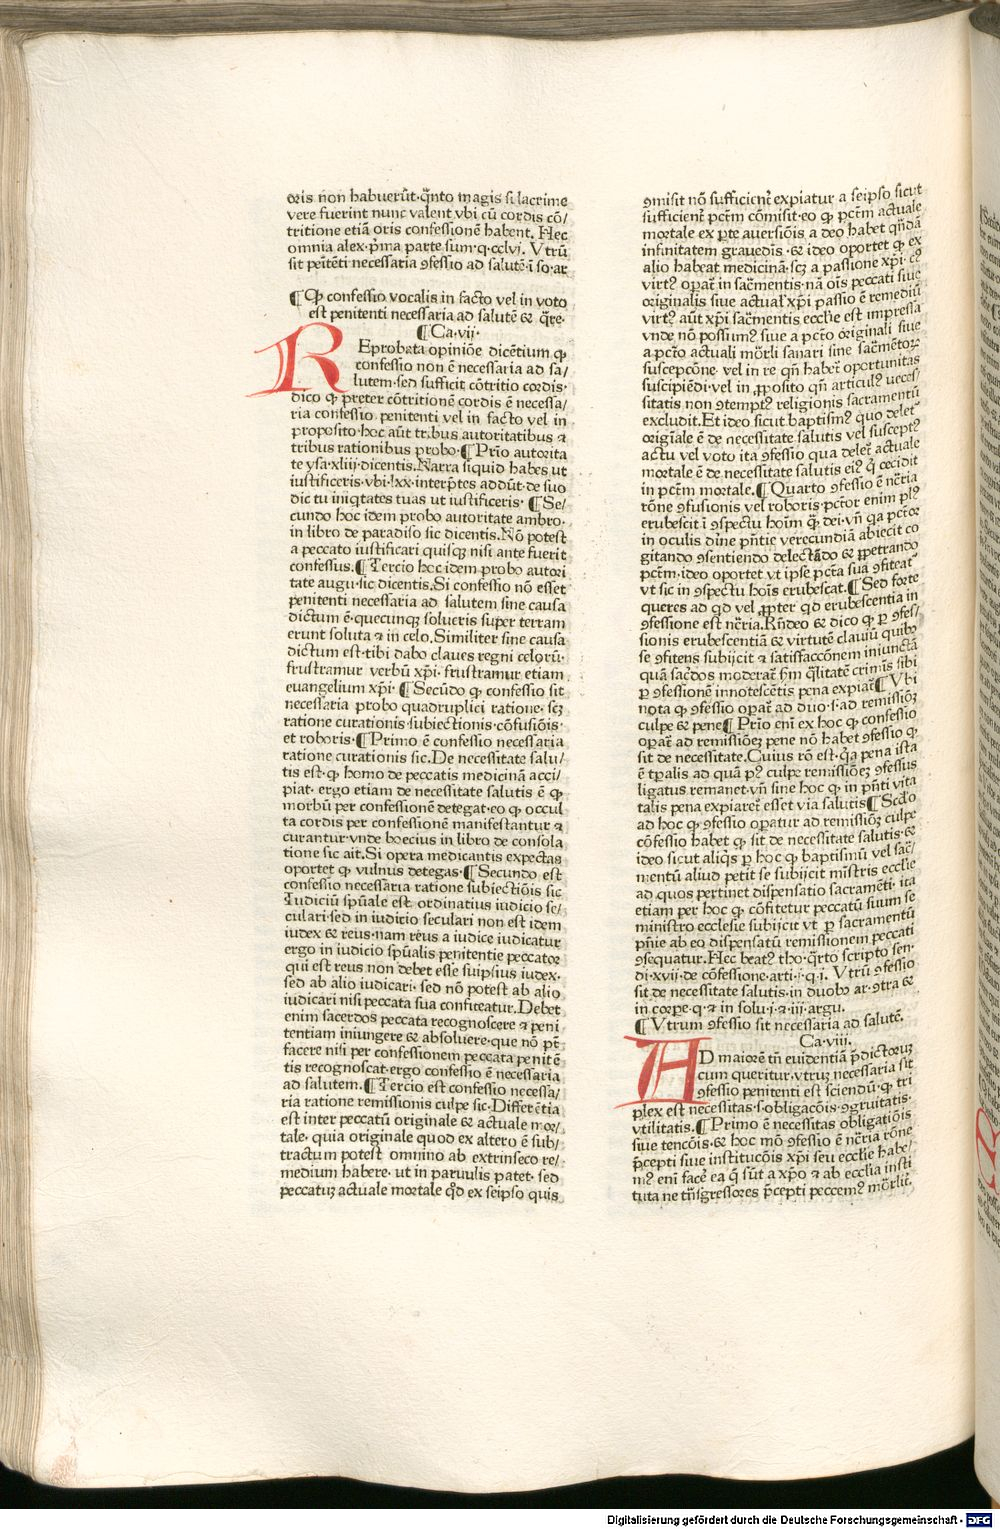 oris non habuerūt·q̄nto magis si lacrime
vere fuerint nunc valent vbi cū cordis cō/
tritione etiā oris confessionē habent. Hec
omnia alex·p̄ma parte sum·q·cclvi. Vtrū
sit peītēti necessaria ꝯfessio ad salutē·i so·ar
¶Qꝫ confessio vocalis in facto vel in voto
est penitenti necessaria ad salutē & q̄re·
¶Ca·vii·
REprobata opiniōe dicētium ꝙ
confessio non ē necessaria ad sa/
lutem·sed sufficit cōtritio cordis·
dico ꝙ preter cōtritionē cordis ē necessa/
ria confessio penitenti vel in facto vel in
proposito·hoc aūt tribus autoritatibus ⁊
tribus rationibus probo·¶Prīo autorita
te ysa·xliii·dicentis.Narra siquid habes ut
iustificeris·vbi·lxx·interp̄tes addūt·de suo
dic tu iniq̄tates tuas ut iustificeris· ¶Se/
cundo hoc idem probo autoritate ambro·
in libro de paradiso sic dicentis.Nō potest
a peccato iustificari quisqꝫ nisi ante fuerit
confessus.¶Tercio hoc idem probo autori
tate augu·sic dicentis.Si confessio nō esset
penitenti necessaria ad salutem sine causa
dictum ē·quecunqꝫ solueris super terram
erunt soluta ⁊ in celo.Similiter sine causa
dictum est·tibi dabo claues regni celorū·
frustramur verbū xp̄i· frustramur etiam
euangelium xp̄i· ¶Secūdo ꝙ confessio sit
necessaria probo quadruplici ratione· sꝫ
ratione curationis·subiectionis·cōfusiōis·
et roboris·¶Primo ē confessio necessaria
ratione curationis sic.De necessitate salu/
tis est·ꝙ homo de peccatis medicinā acci/
piat· ergo etiam de necessitate salutis ē ꝙ
morbū per confessionē detegat·eo ꝙ occul
ta cordis per confessionē manifestantur ⁊
curantur·vnde boecius in libro de consola
tione sic ait.Si opera medicantis expectas
oportet ꝙ vulnus detegas·¶Secundo est
confessio necessaria ratione subiectiōis sic
Iudiciū sp̄uale est ordinatius iudicio se/
culari·sed in iudicio seculari non est idem
iudex & reus·nam reus a iudice iudicatur
ergo in iudicio sp̄ualis penitentie peccator
qui est reus non debet esse suipsius iudex·
sed ab alio iudicari· sed nō potest ab alio
iudicari nisi peccata sua confiteatur.Debet
enim sacerdos peccata recognoscere ⁊ peni
tentiam iniungere & absoluere·que nō pt̄
facere nisi per confessionem peccata penitē
tis recognoscat·ergo confessio ē necessaria
ad salutem.¶Tercio est confessio necessa/
ria ratione remissionis culpe sic·Differētia
est inter peccatū originale & actuale mor/
tale· quia originale quod ex altero ē sub/
tractum potest omnino ab extrinseco re/
medium habere· ut in paruulis patet· sed
peccatuꝫ actuale mortale q̄d ex seipso quis
ꝯmisit nō sufficient̄ expiatur a seipso sicut
sufficient̄ pctm̄ cōmisit·eo ꝙ pctm̄ actuale
mortale ex p̄te auersiōis a deo habet q̄ndā
infinitatem grauedīs ·& ideo oportet ꝙ ex
alio habeat medicinā·sꝫ a passione xp̄i·cꝰ
virtꝰ opat̄ in sac̄mentis·nā oīs peccati siue
originalis siue actuał xp̄i passio ē remediū
virtꝰ aūt xp̄i sac̄mentis ecclie est impressa
vnde nō possumꝰ siue a pcto originali siue
a pcto actuali mōrli sanari sine sac̄mētoꝝ
suscepcōne· vel in re qn̄ habet̄ oportunitas
suscipiēdi·vel in ꝓposito qn̄ articulꝰ neces/
sitatis non ꝯtemptꝰ religionis sacramentū
excludit.Et ideo sicut baptismꝰ quo delet̄
origīale ē de necessitate salutis vel susceptꝰ
actu vel voto ita ꝯfessio qua delet̄ actuale
mortale ē de necessitate salutis eiꝰ q̄ cecidit
in pctm̄ mortale.¶Quarto ꝯfessio ē nec̄ria
rōne ꝯfusionis vel roboris·pctor enim plꝰ
erubescit ī ꝯspectu hoīm q̄ꝫ dei·vn̄ qa pctor
in oculis diīne pn̄tie verecundiā abiecit co
gitando ꝯsentiendo delectādo & ꝑpetrando
pctm̄·ideo oportet vt ipse pcta sua ꝯfiteat̄
vt sic in ꝯspectu hoīs erubescat.¶Sed forte
queres ad qd vel ꝓpter qd erubescentia in
ꝯfessione est nec̄ria.Rn̄deo & dico ꝙ ꝑ ꝯfes/
sionis erubescentiā & virtutē clauiū quibꝫ
se ꝯfitens subijcit ⁊ satisfaccōnem iniunctā
quā sac̄dos moderat̄ s̄m q̄litatē crimīs sibi
ꝑ ꝯfessionē innotescētis pena expiat̄¶Vbi
nota ꝙ ꝯfessio opat̄ ad duo·s·ad remissiōꝫ
culpe & pene¶Prīo enī ex hoc ꝙ confessio
opat̄ ad remissiōeꝫ pene nō habet ꝯfessio ꝙ
sit de necessitate.Cuius rō est·q̄a pena ista
ē tp̄alis ad quā pꝰ culpe remissiōeꝫ ꝯfessus
ligatus remanet·vn̄ sine hoc ꝙ in pn̄ti vita
talis pena expiaret̄ esset via salutis¶Scdo
ad hoc ꝙ ꝯfessio opatur ad remissiōꝫ culpe
cōfessio habet ꝙ sit de necessitate salutis·&
ideo sicut aliq̄s ꝑ hoc ꝙ baptismū vel sac̄/
mentū aliud petit se subijcit mīstris ecclie
ad quos pertinet dispensatio sacramēti· ita
etiam per hoc ꝙ cōfitetur peccatū suum se
ministro ecclesie subijcit vt ꝑ sacramentū
pn̄ie ab eo dispensatū remissionem peccati
ꝯsequatur.Hec beatꝰ tho·q̄rto scripto sen·
di·xvii·de cōfessione·arti·i·q·i. Vtrū ꝯfessio
sit de necessitate salutis·in duobꝫ ar·ꝯtra &
in corpe·q·⁊ in solu·i·⁊ iii·argu.
¶Vtrum ꝯfessio sit necessaria ad salutē.
Ca·viii.
AD maiorē tn̄ euidentiā p̄dictoruꝫ
cum queritur·vtruꝫ necessaria sit
ꝯfessio penitenti est sciendū·ꝙ tri
plex est necessitas·s·obligacōis·ꝯgruitatis·
vtilitatis.¶Primo ē necessitas obligatiōis
siue tencōis·& hoc mō ꝯfessio ē nec̄ria rōne
p̄cepti siue institucōis xp̄i seu ecclie habe/
mꝰ enī fac̄e ea q̄ sūt a xp̄o ⁊ ab ecclia insti
tuta ne tn̄sgressores p̄cepti peccemꝰ mōrlit̄·
Digitalisierung gefördert durch die Deutsche Forschungsgemeinschaft - DFG